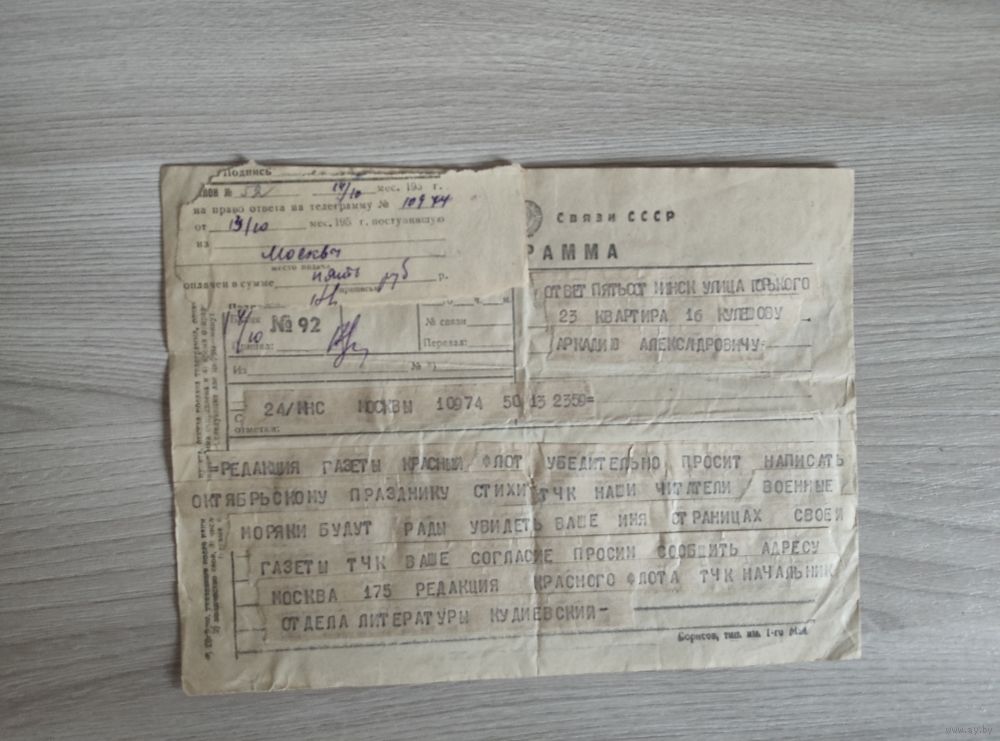 Подпись
№ 52 14/10 мес. 195 г.
на право ответа на телеграмму № 10974
от 13/10 мес. 195 г. поступившую
из Москвы
место подачи
оплачен в сумме пять руб р.
прописью
Связи СССР
РАММА
ОТВЕТ ПЯТЬСОТ МИНСК УЛИЦА ГОРЬКОГО
23 КВАРТИРА 16 КУЛЕШОВУ
АРКАДИЮ АЛЕКСАДРОВИЧУ=
Бланк № 92
14/10
№ связи
Передал:
Из №
24/МНС МОСКВЫ 10974 50 13 2359=
отметки:
=РЕДАКЦИЯ ГАЗЕТЫ КРАСНЫЙ ФЛОТ УБЕДИТЕЛЬНО ПРОСИТ НАПИСАТЬ
ОКТЯБРЬСКОМУ ПРАЗДНИКУ СТИХИ ТЧК НАШИ ЧИТАТЕЛИ ВОЕННЫЕ
МОРЯКИ БУДУТ РАДЫ УВИДЕТЬ ВАШЕ ИМЯ СТРАНИЦАХ СВОЕЙ
ГАЗЕТЫ ТЧК ВАШЕ СОГЛАСИЕ ПРОСИМ СООБЩИТЬ АДРЕСУ
МОСКВА 175 РЕДАКЦИЯ КРАСНОГО ФЛОТА ТЧК НАЧАЛЬНИК
ОТДЕЛА ЛИТЕРАТУРЫ КУДИЕВСКИЙ-
Борисов, тип. им. 1-го Мая
www.ay.by